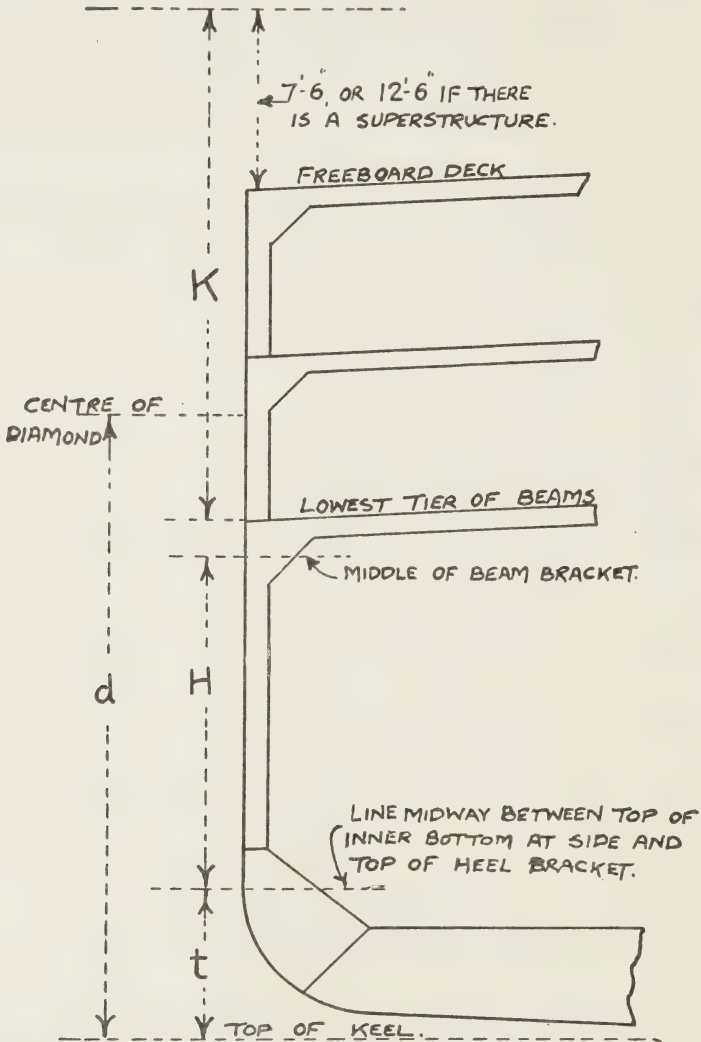 7'-6", OR 12'-6" IF THERE
IS A SUPERSTRUCTURE.
FREEBOARD DECK
K
CENTRE OF
DIAMOND
LOWEST TIER OF BEAMS
MIDDLE OF BEAM BRACKET.
d
H
LINE MIDWAY BETWEEN TOP OF
INNER BOTTOM AT SIDE AND
TOP OF HEEL BRACKET.
t
TOP OF KEEL.